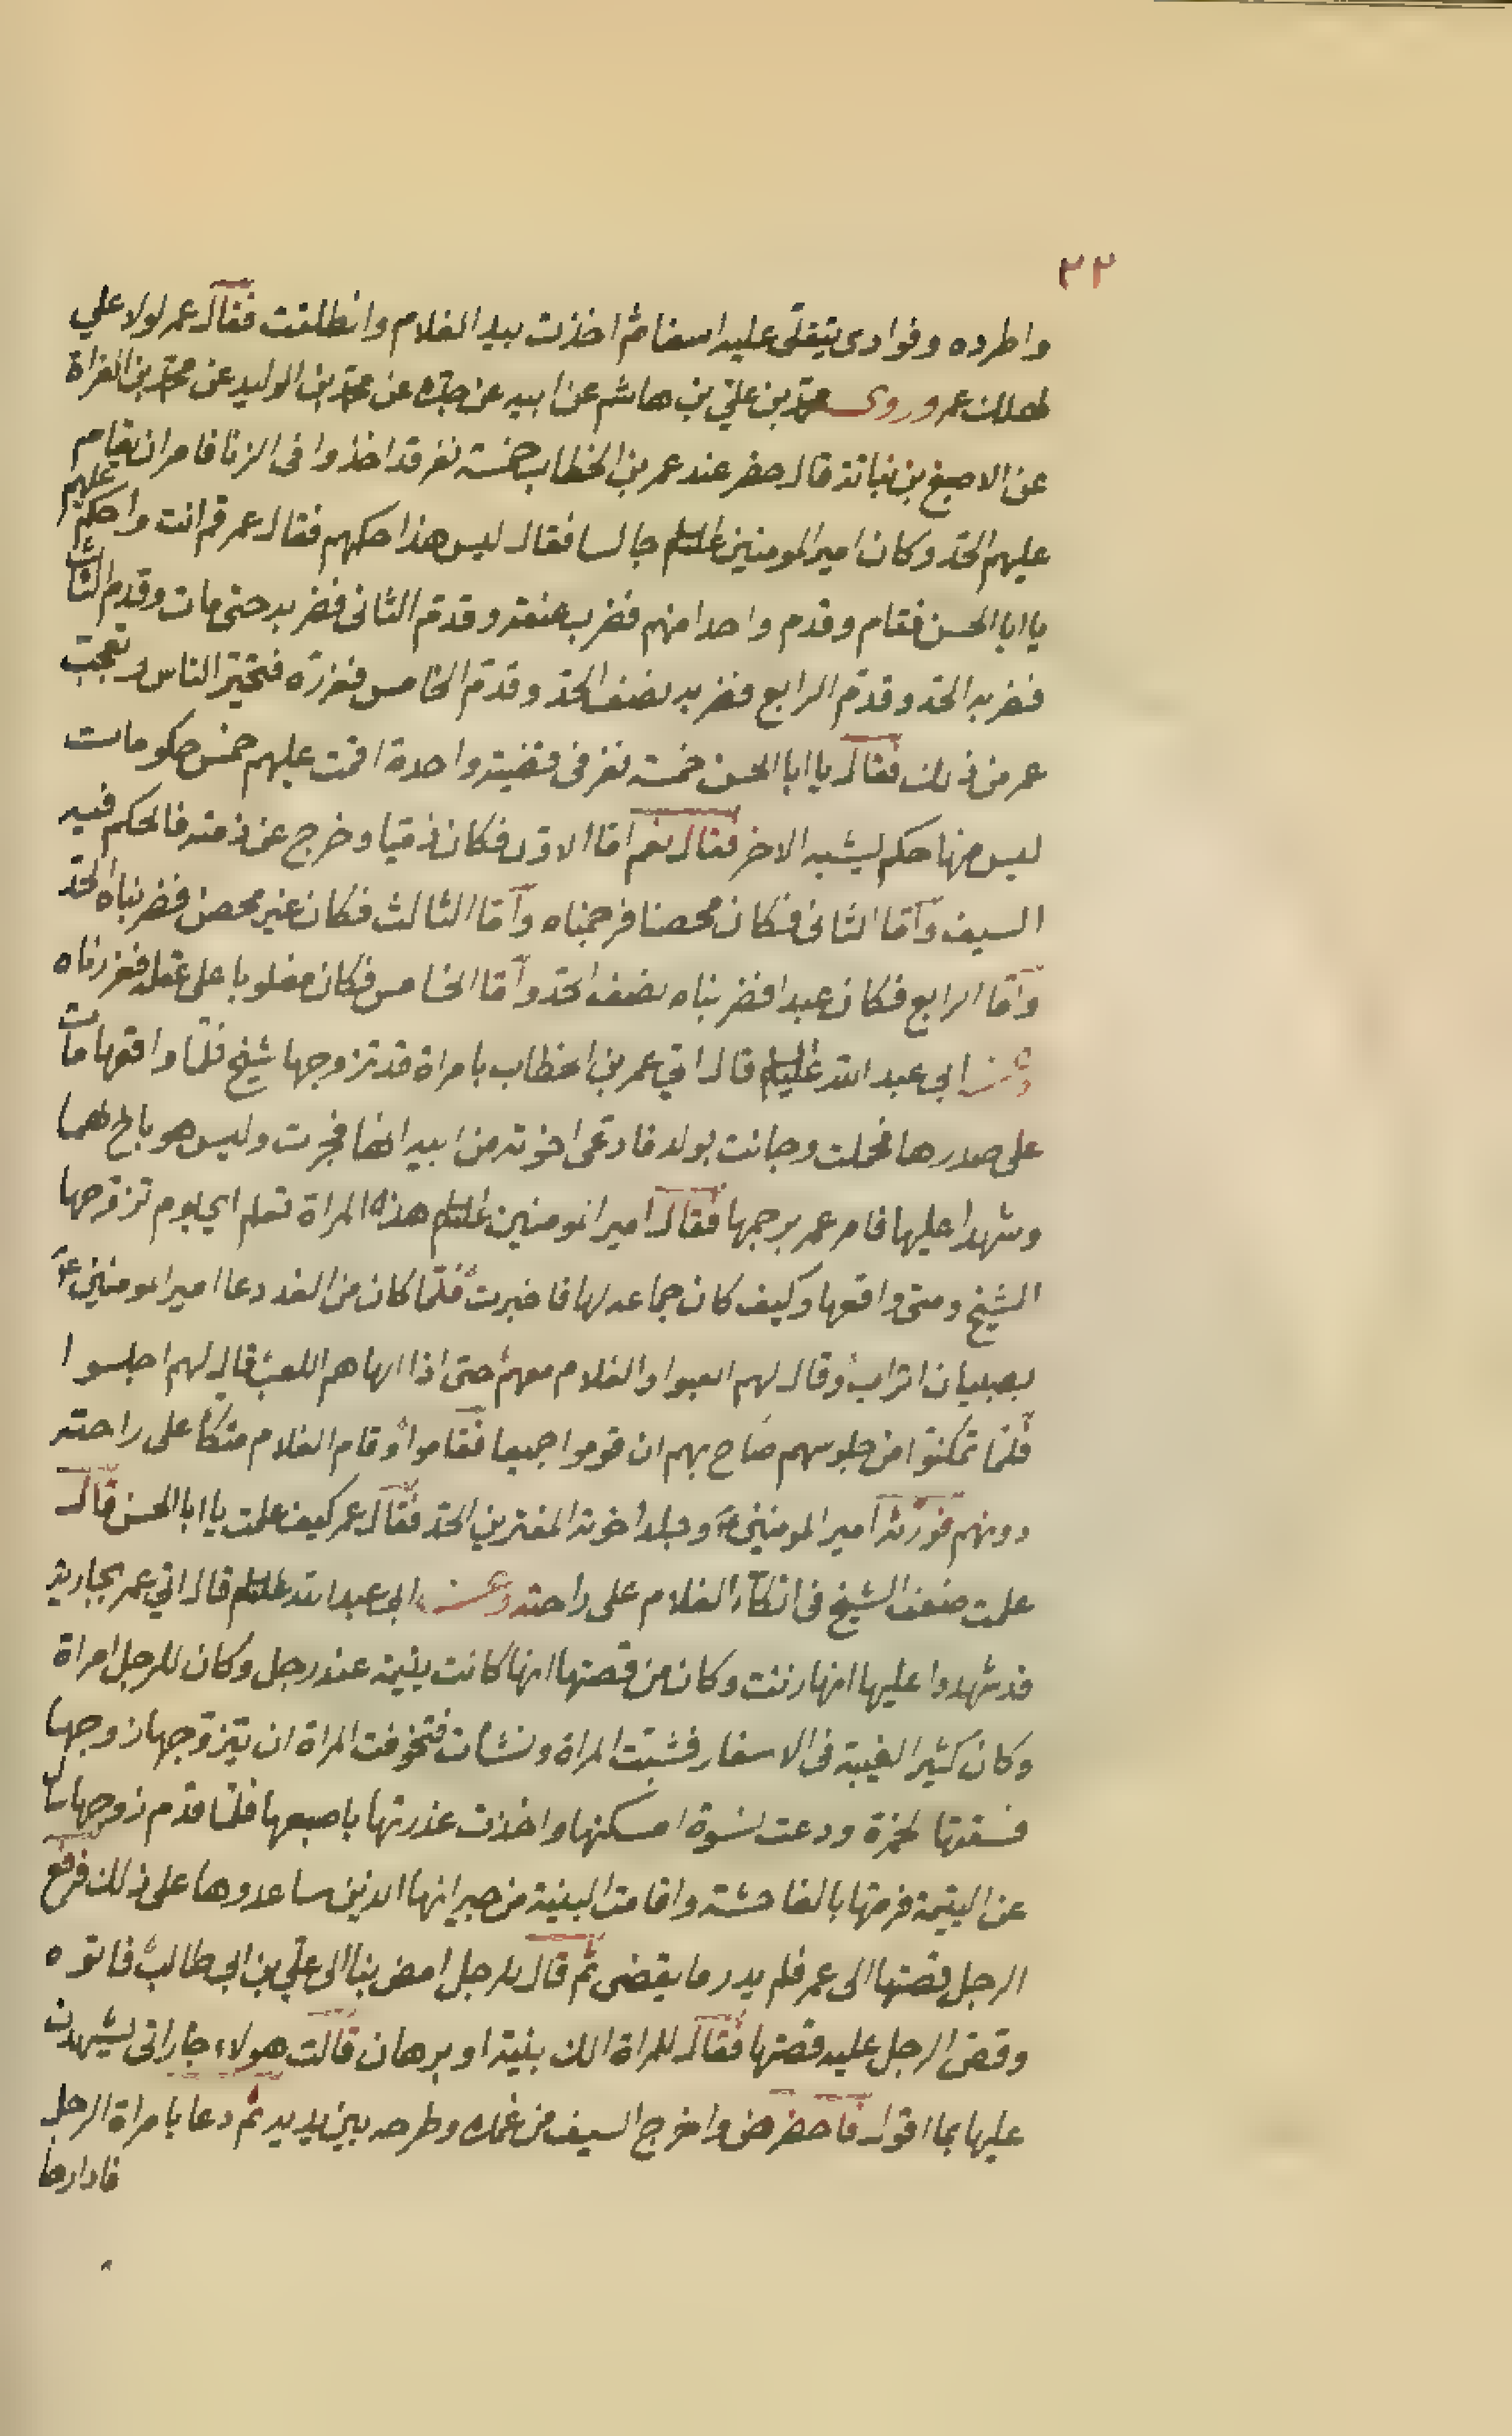 ٢٢
واطرده وفوادى يتقلى عليه اسفا ثم اخذت بيد الغلام وانطلقت فقال عمر لولا علي
لهلك عمر وروى محمد بن علي بن هاشم عن ابيه عن جده عن محمد بن الوليد عن محمد بن الفراة
عن الاصبغ بن نباتة قال حضر عند عمر بن الخطاب خمسة نفر قد اخذوا في الزنا فامر ان يقام
عليهم الحد وكان امير المومنين عليلم جالسا فقال ليس هذا حكمهم فقال عمر قم انت واحكم عليهم
يا ابا الحسن فقام وقدم واحدا منهم فضرب عنقه وقدم الثاني فضربه حتى مات وقدم الثالث
فضربه الحد وقدم الرابع فضربه نصف الحد وقدم الخامس فعزره فتحير الناس وتعجب
عمر من ذلك فقال يا ابا الحسن خمسة نفر في قضية واحدة اقمت عليهم خمس حكومات
ليس منها حكم يشبه الاخر فقال نعم اما الاول فكان ذميا وخرج عن ذمته فالحكم فيه
السيف واما الثاني فكان محصنا فرجمناه واما الثالث فكان غير محصن فضربناه الحد
واما الرابع فكان عبدا فضربناه نصف الحد واما الخامس فكان مغلوبا على عقله فعزرناه
وعن ابي عبد الله عليلم قال اتي عمر بن الخطاب بامراة قد تزوجها شيخ فلما واقعها مات
على صدرها فحملت وجائت بولد فادعى اخوته من ابيه انها فجرت وليس هو بالخ لهما
وشهدا عليها فامر عمر برجمها فقال امير المومنين عليلم هذه المراة تعلم اي يوم تزوجها
الشيخ ومتى واقعها وكيف كان جماعه لها فاخبرت فلما كان من الغد دعا امير المومنين ع
بصبيان اتراب وقال لهم العبوا والغلام معهم حتى اذا الهاهم اللعب قال لهم اجلسوا
فلما تمكنوا من جلوسهم صاح بهم ان قوموا جميعا فقاموا وقام الغلام متكأ على راحته
دونهم فورثه امير المومنين ع وجلد اخوته المفترين الحد فقال عمر كيف علمت يا ابا الحسن قال
علمت ضعف الشيخ في اتكآء الغلام على راحته وعن ابي عبد الله عليلم قال اتي عمر بجارية
قد شهدوا عليها انها زنت وكان من قصتها انها كانت يتيمة عند رجل وكان للرجل امراة
وكان كثير الغيبة في الاسفار فشبت المراة ونشات فتخوفت المراة ان يتزوجها زوجها
فسقتها الخمرة ودعت نسوة امسكنها واخذت عذرتها باصبعها فلما قدم زوجها سال
عن اليتيمة فرمتها بالفاحشة واقامت البينة من جيرانها الذين ساعدوها على ذلك فرفع
الرجل قصتها الى عمر فلم يدر ما يقضى ثم قال للرجل امض بنا الى علي بن ابي طالب فاتوه
وقص الرجل عليه قصتها فقال للمراة الك بينة او برهان قالت هولاء جاراتي يشهدن
عليها بما اقول فاحضرهن واخرج السيف من غمده وطرحه بين يديه ثم دعا بامراة الرجل
فادارها